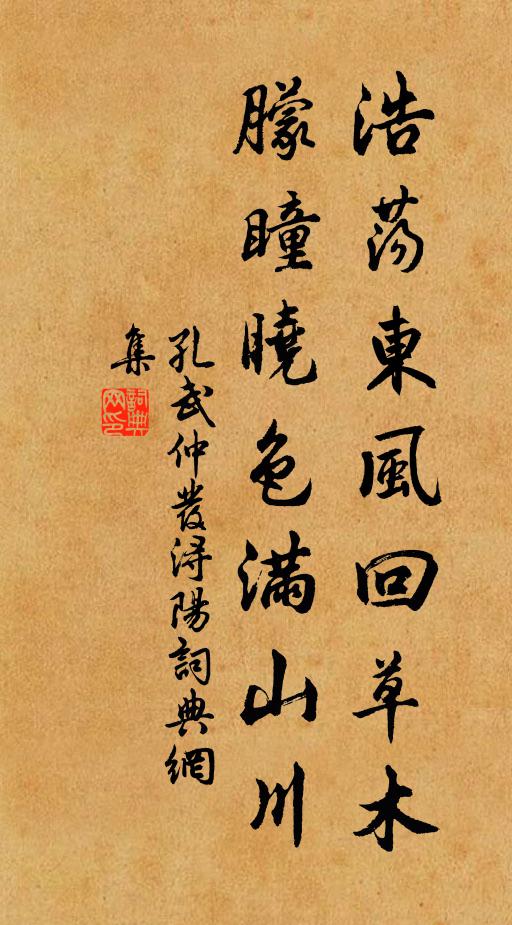 浩荡東風回草木
朦瞳曉色滿山川
孔武仲發浔陽詞典網
集
詞典
网印